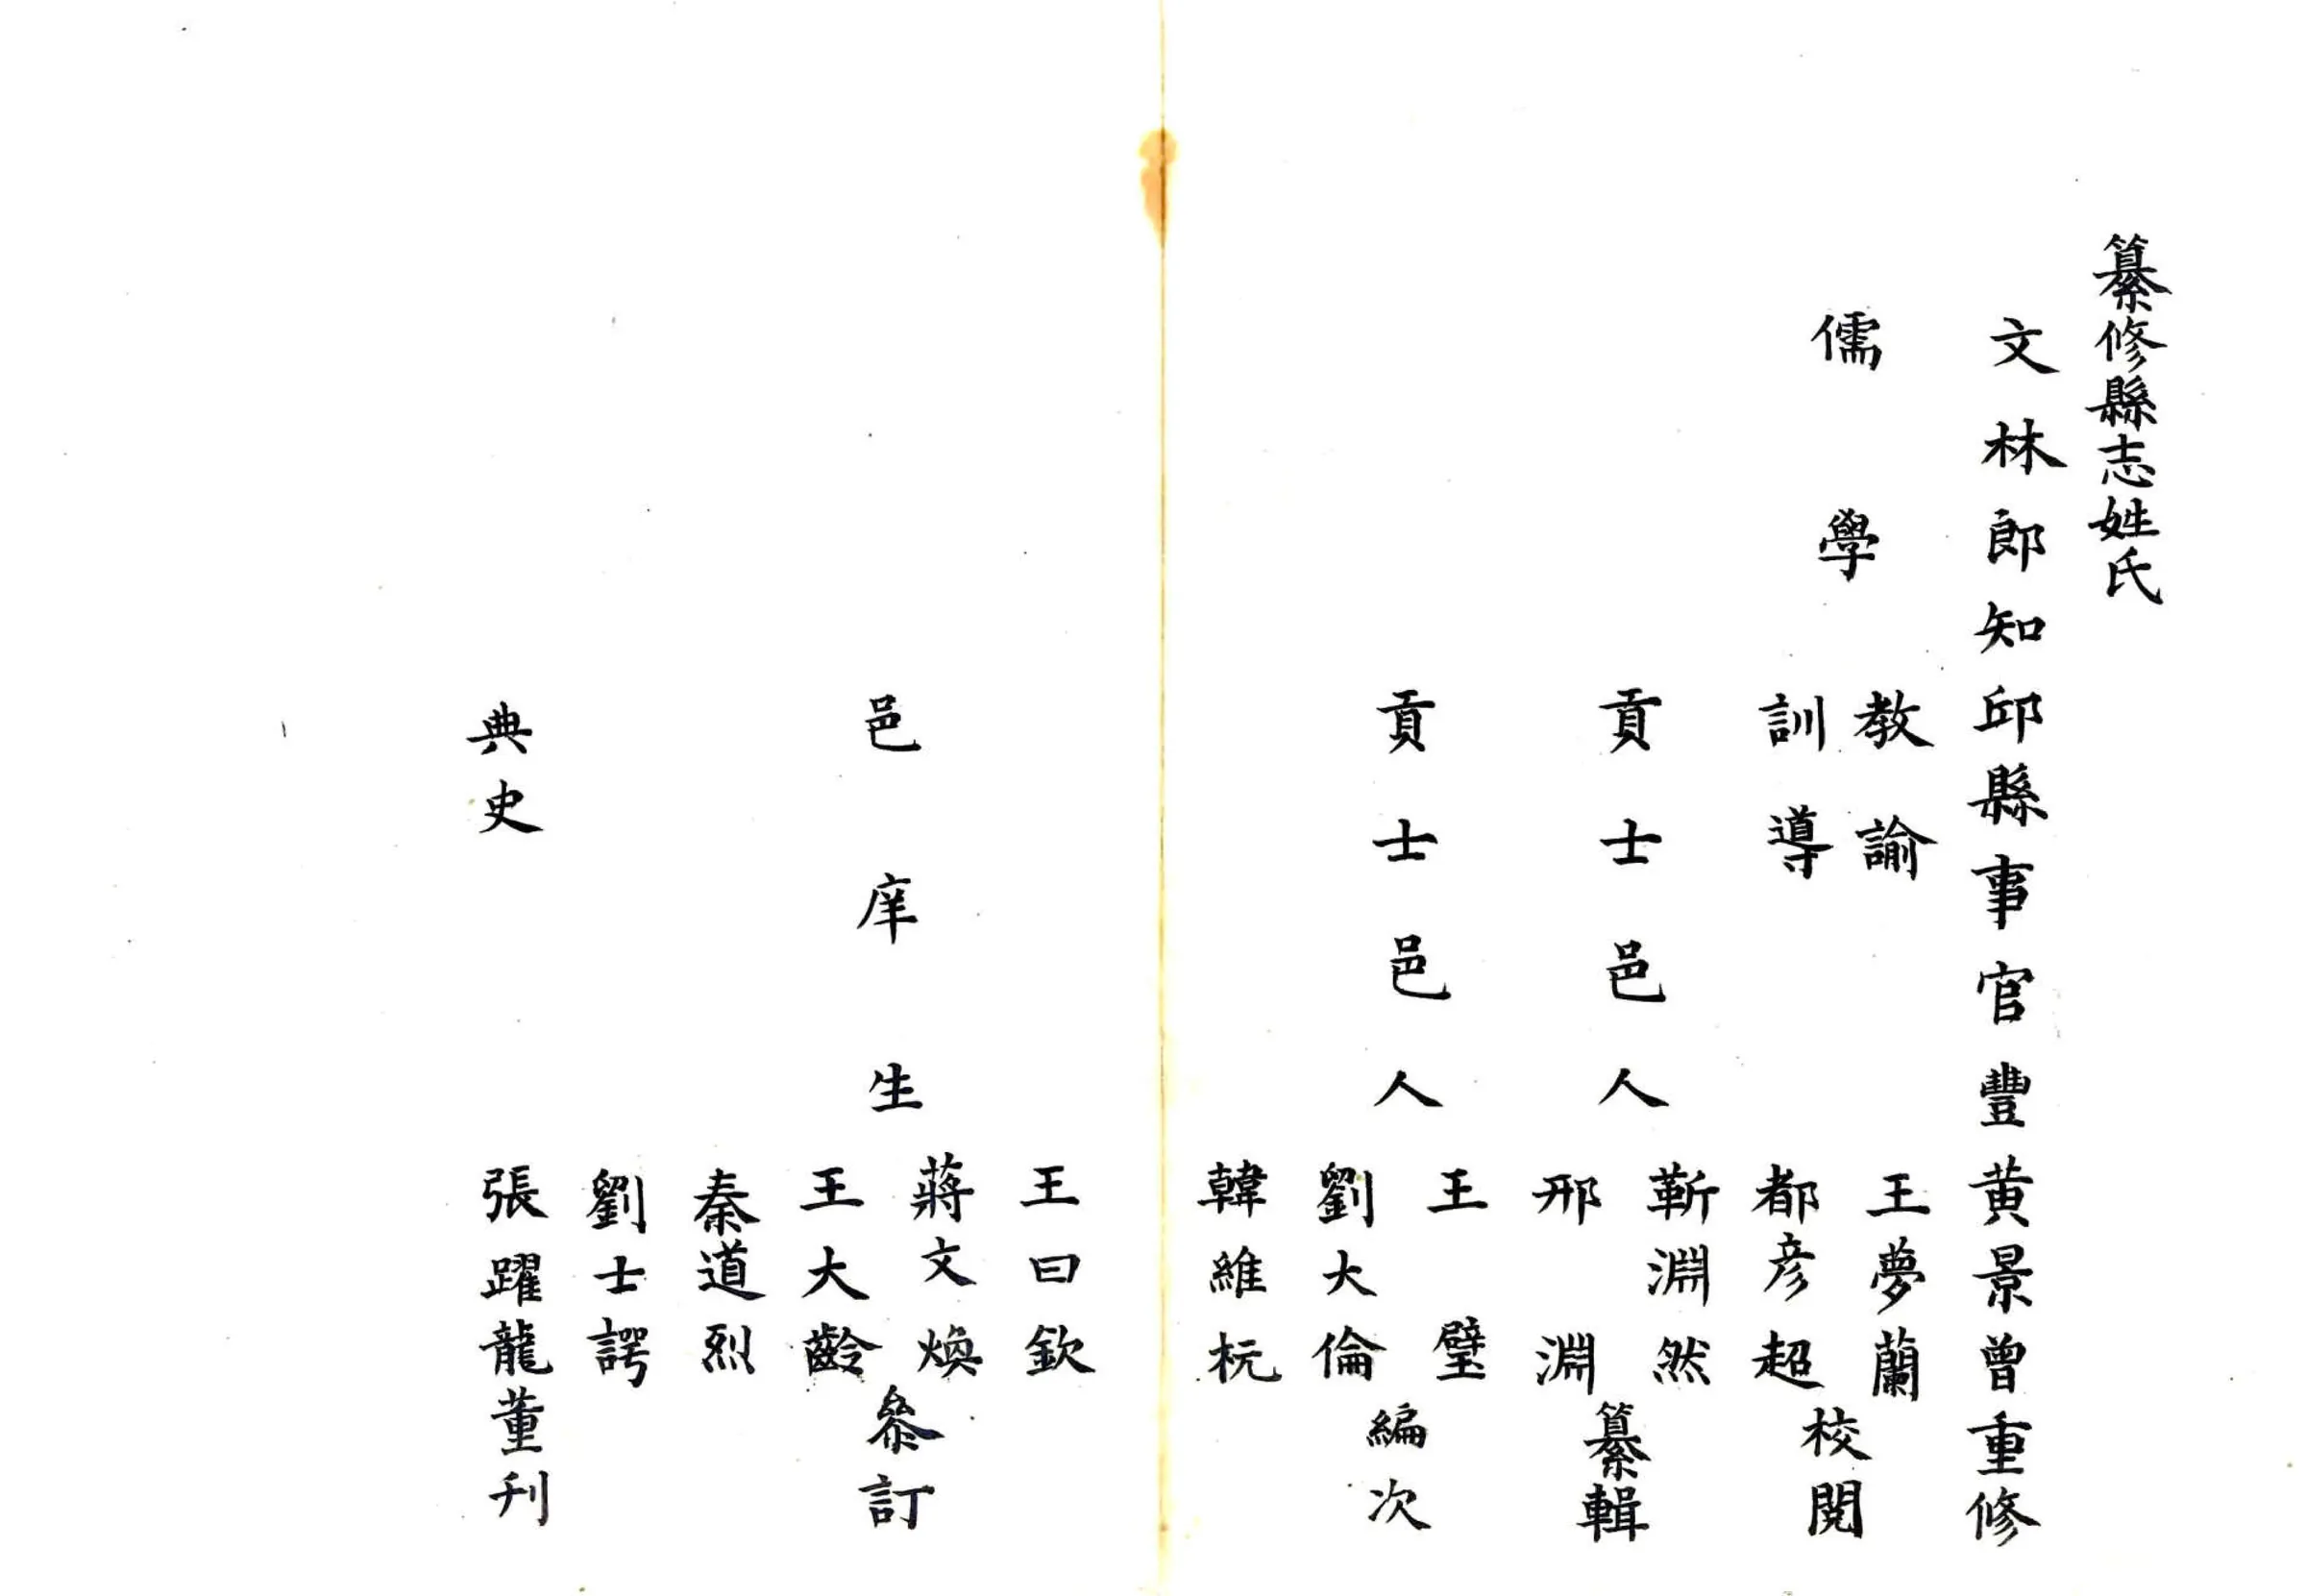 纂修縣志姓氏
文林郎知邱縣事官豐黄景曾重修
儒學
教諭
王夢蘭
訓導
都彦超
校閲
貢士邑人
靳淵然
邢淵
纂輯
貢士邑人
王璧
劉大倫
韓維杬
編次
邑庠生
王曰欽
蔣文煥
王大齡
秦道烈
劉士諤
叅訂
典史
張躍龍董刊